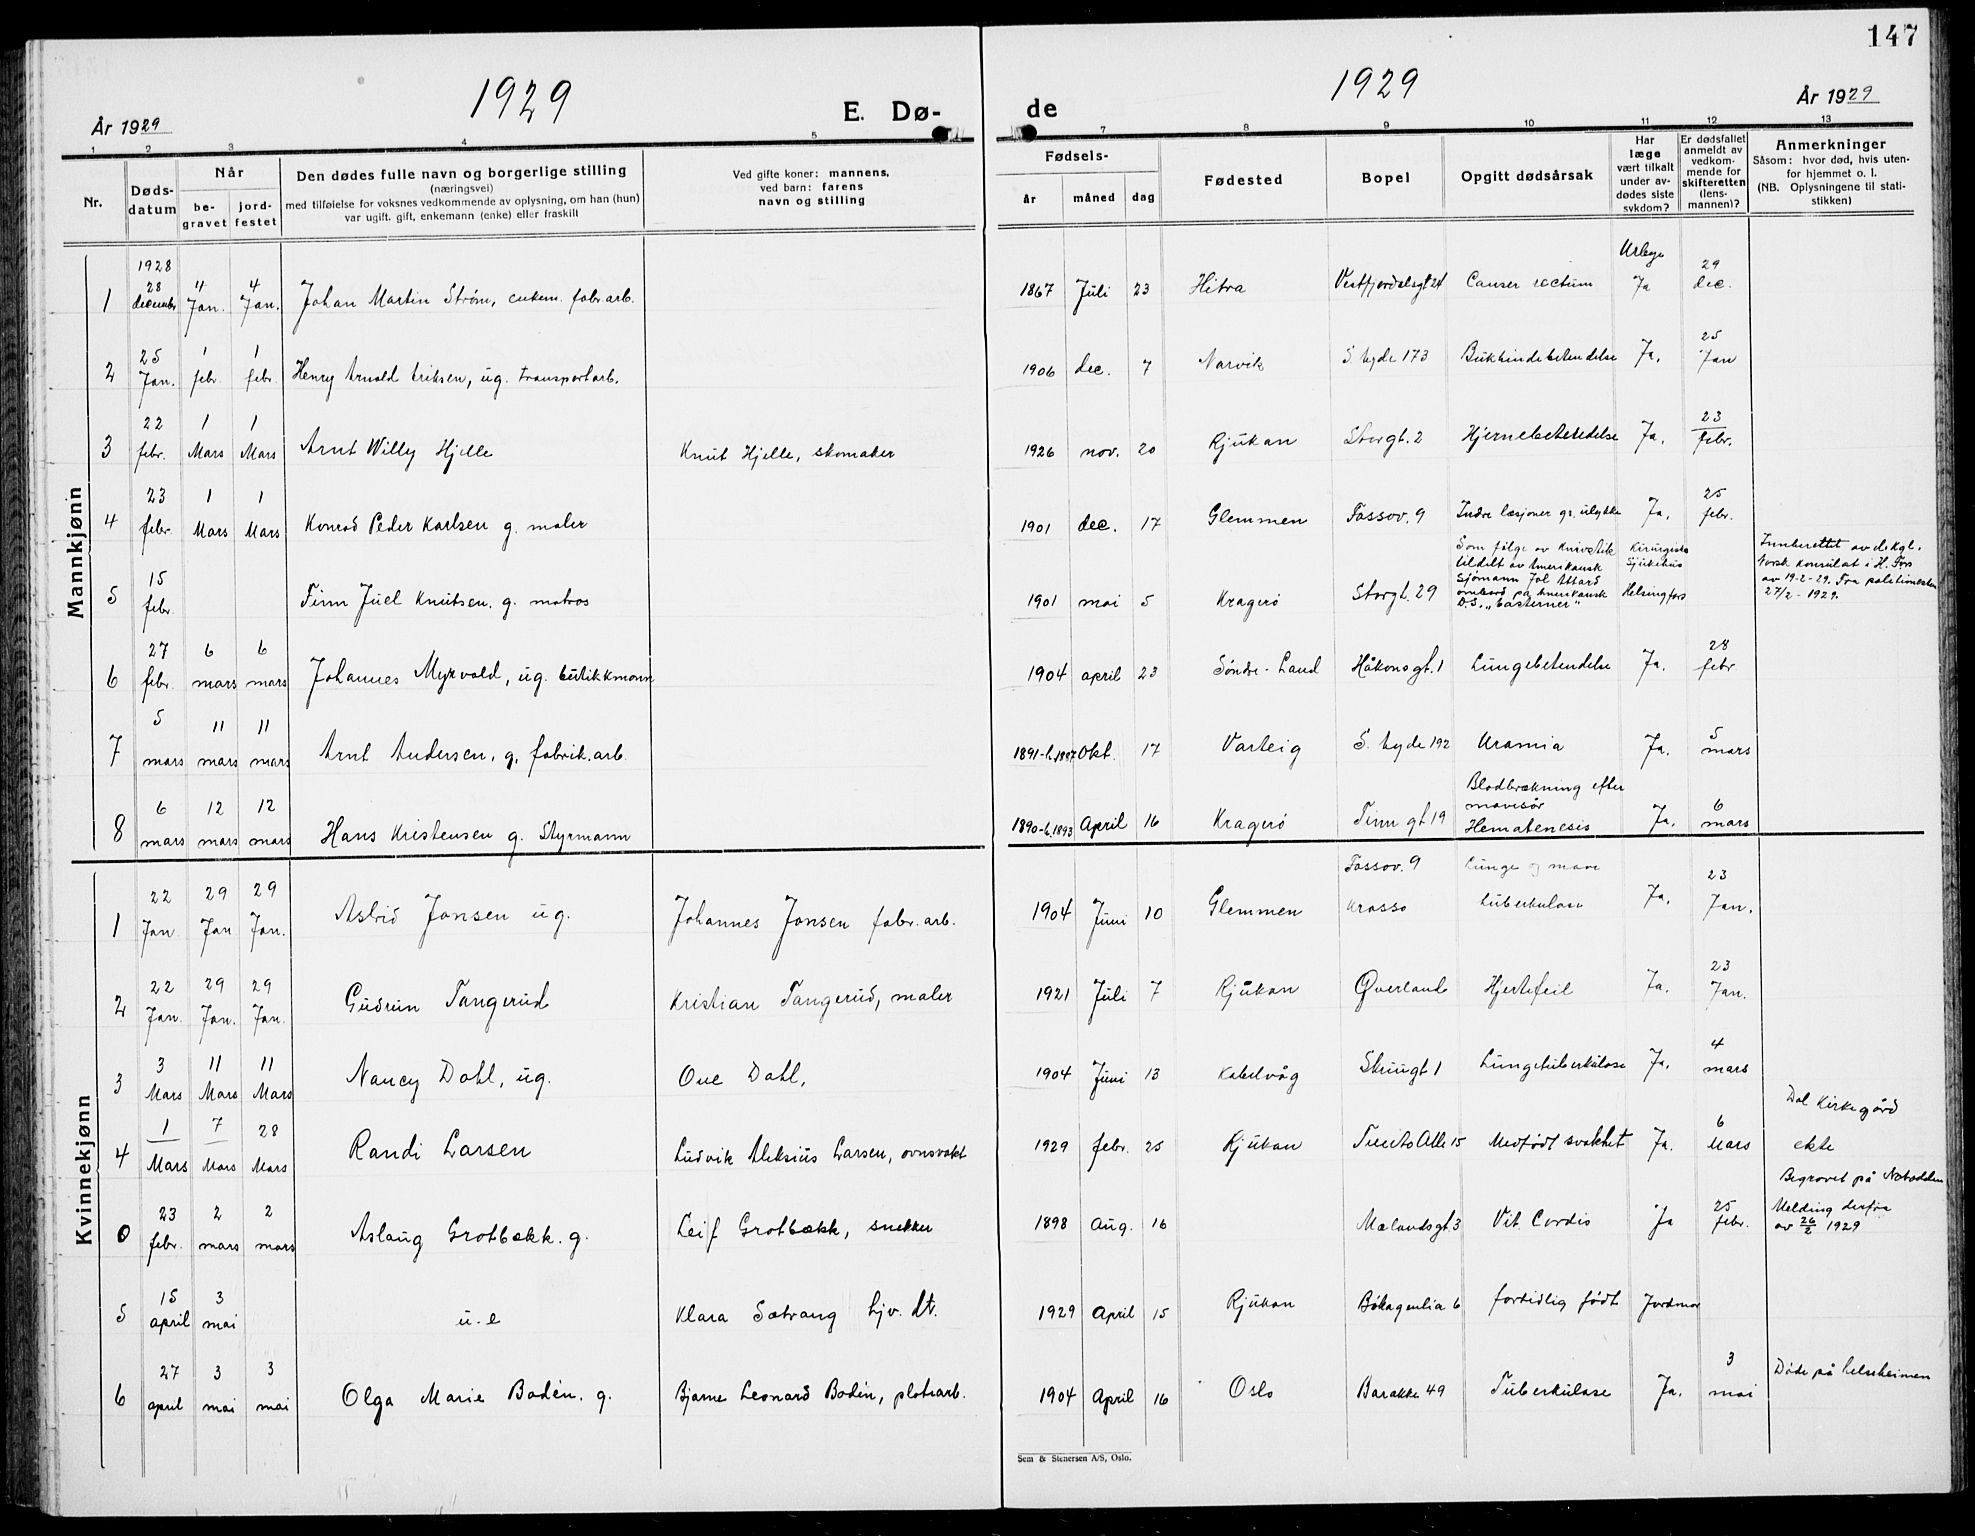 147
1929
1929
År 1929
E. Dø-
de
År 1929
1 2 3 4 5 7 8 9 10 11 12 13
Nr.
Døds-
datum
Når
be-
gravet
jord-
festet
Den dødes fulle navn og borgerlige stilling
(næringsvei)
med tilføielse for voksnes vedkommende av oplysning, om han (hun)
var ugift, gift, enkemann (enke) eller fraskilt
Ved gifte koner: mannens,
ved barn: farens
navn og stilling
Fødsels-
år måned dag
Fødested
Bopel
Opgitt dødsårsak
Har
læge
vært tilkalt
under av-
dødes siste
sykdom?
Er dødsfallet
anmeldt av
vedkom-
mende for
skifteretten
(lens-
mannen)?
Anmerkninger
Såsom: hvor død, hvis uten-
for hjemmet o. l.
(NB. Oplysningene til stati-
stikken)
Mannkjønn
1 1928 28 december 4 Jan. 4 Jan. Johan Martin Strøm, enkem. fabr.arb. 1867 Juli 23 Hitra Vestfjordalsgt 24 Canser rectum Ja 29 dec.
2 25 Jan. 1 febr. 1 febr. Henry Arnold Eriksen, ug. transportarb. 1906 dec. 7 Narvik S. byde 173 Bukhindebetendelse Ja. 25 Jan
3 22 febr. 1 Mars 1 Mars Arnt Willy Hjelle Knut Hjelle, skomaker 1926 nov. 20 Rjukan Storgt. 2 Hjernebetendelse Ja. 23 febr.
4 23 febr. 1 Mars 1 Mars Konrad Peder Karlsen g. maler 1901 dec. 17 Glemmen Fossov. 9 Indre læsjoner gr. ulykke Ja. 25 febr.
5 15 febr. Finn Juel Knutsen. g. matros 1901 mai 5 Kragerø Storgt. 29
Som følge av Knivstik
tildelt av Amerikansk
Sjømann
ombord på Amerikansk
D.S. „Easterner"
Kirurgiske
Sjukehus
Helsingfors
Innberettet av d. Kgl.
Norsk konsulat i H. Fors
av 19-2-29. Fra
27/2 - 1929.
6 27 febr. 6 mars 6 mars Johannes Myrvold, ug. butikkmann 1904 april 23 Søndre-Land Håkonsgt. 1 Lungebetendelse Ja. 28 febr
7 5 mars 11 mars 11 mars Arnt Andersen, g. fabrik.arb. 1891-b.1887 Okt. 17 Varteig S. byde 192 Uramia Ja. 5 mars
8 6 mars 12 mars 12 mars Hans Kristensen g. Styrmann 1890-b.1893 April 16 Kragerø Tinn gt 19
Blodbrækning efter
mavesår
Hematenesis
Ja. 6 mars
Kvinnekjønn
1 22 Jan. 29 Jan 29 Jan. Astrid Jonsen ug. Johannes Jonsen fabr. arb. 1904 Juni 10 Glemmen Fossov. 9 Krosso Lunge og mave tuberkulose Ja. 23 Jan.
2 22 Jan. 29 Jan. 29 Jan. Gudrun Tangerud Kristian Tangerud, maler 1921 Juli 7 Rjukan Øverland Hjertefeil Ja. 23 Jan.
3 3 Mars 11 Mars 11 Mars Nancy Dahl, ug. Ove Dahl, 1904 Juni 13 Kabelvåg Lungetuberkulose Ja. 4 mars
4 1 Mars 7 Mars 28 Mars Randi Larsen Ludvik Aleksius Larsen, ovnsvakt 1929 febr. 25 Rjukan Tveito Alle 15 Medfødt svakhet Ja. 6 Mars
Dal Kirkegård
ekte
0 23 febr. 2 mars 2 mars Aslaug Grotbækk. g. Leif Grotbækk, snekker 1898 Aug. 16 Mælandsgt. 3 Vit. Cordis Ja 25 febr.
Begravet på Notodden
Melding derfra
av 26/2 1929
5 15 april 3 mai u. e Klara Satrang hjv. dt. 1929 April 15 Rjukan Bøkagenlia 6 fortidlig født Jordmor
6 27 april 3 mai 3 mai Olga Marie Bodén. g. Bjarne Leonard Bodén, platearb. 1904 April 16 Oslo Barakke 49 Tuberkulose Ja. 3 mai Døde på helseheimen
Sem & Stenersen A/S, Oslo.